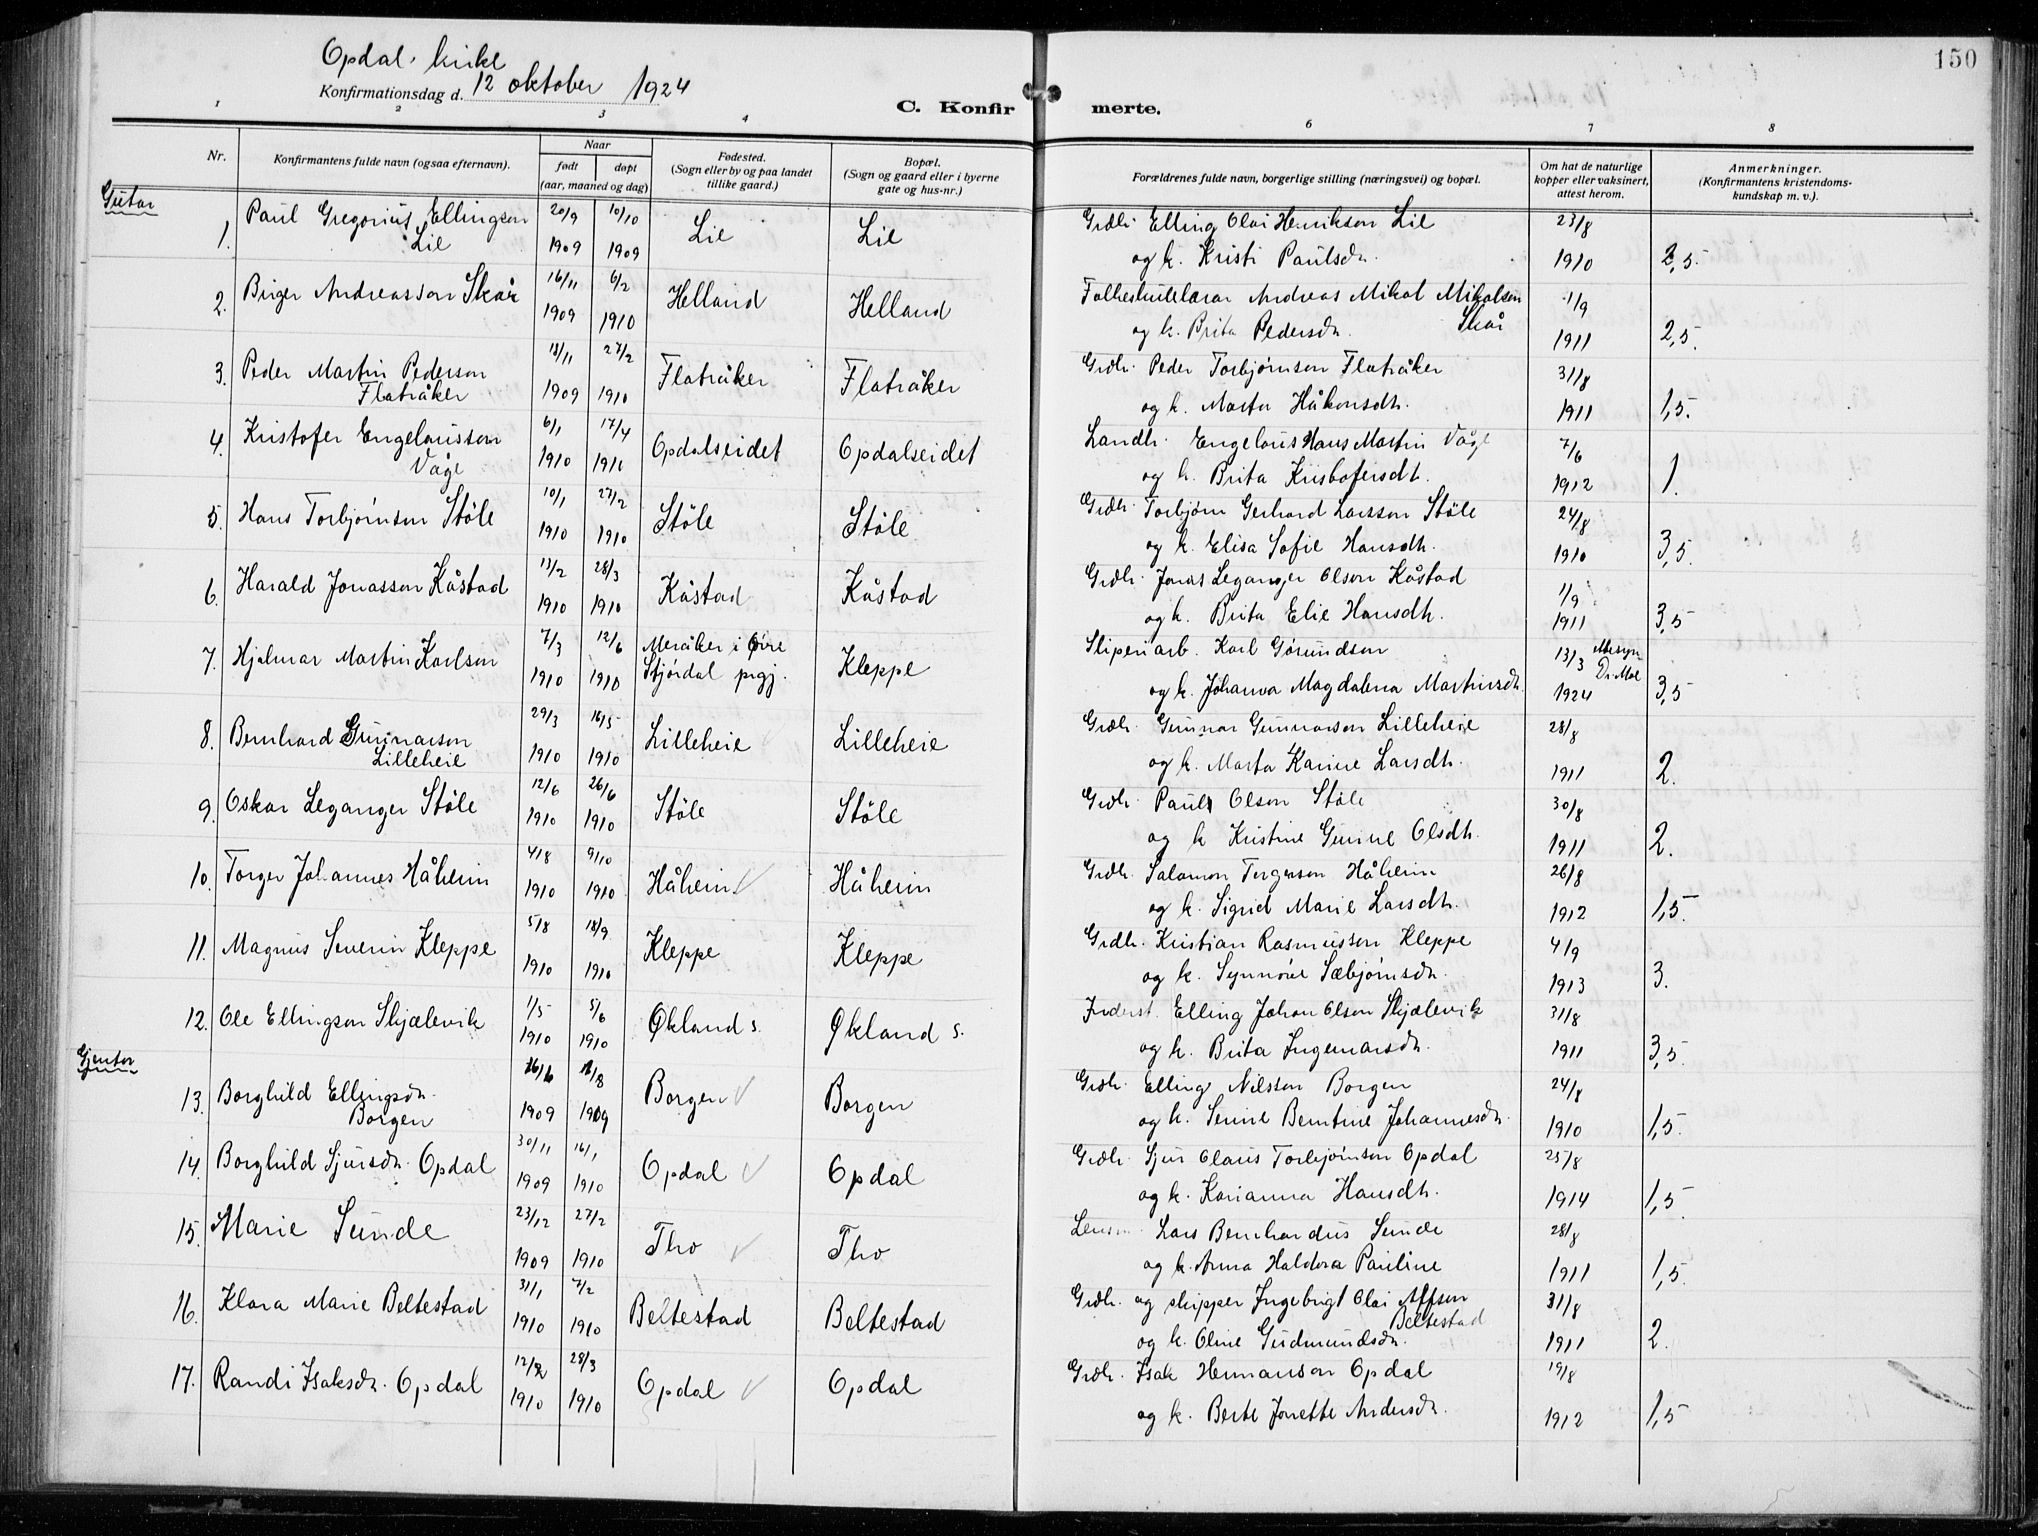 150
Opdal kirke
Konfirmationsdag d. 12 oktober 1924
C. Konfirmerte.
1 2 3 4 6 7 8
Nr.
Konfirmantens fulde navn (ogsaa efternavn).
Naar
født døpt
(aar, maaned og dag)
Fødested.
(Sogn eller by og paa landet
tillike gaard.)
Bopæl.
(Sogn og gaard eller i byerne
gate og hus-nr.)
Forældrenes fulde navn, borgerlige stilling (næringsvei) og bopæl.
Om hat de naturlige
kopper eller vaksinert,
attest herom.
Anmerkninger.
(Konfirmantens kristendoms-
kundskap m. v.).
Gutar
1. Paul Gregorius Ellingson 20/9 10/10 Lie Lie Grdbr. Elling Olai Henrikson Lie 23/8
Lie 1909 1909 og k. Kristi Paulsdr. 1910 2,5.
2. Birger Andreasson Skår 16/11 6/2 Helland Helland Folkeskulelærar Andreas Mikal Mikalson 1/9
1909 1910 og k. Brita Pedersdr. Skår 1911 2,5.
3. Peder Martin Pederson 18/11 27/2 Flatråker Flatråker Grdbr. Peder Torbjørnson Flatråker 31/8
Flatråker 1909 1910 og k. Marta Håkonsdtr. 1911 1,5.
4. Kristofer Engelausson 6/1 17/4 Opdalseidet Opdalseidet Landh. Engelaus Hans Martin Våge 7/6
Våge 1910 1910 og k. Brita Kristofersdt. 1912 1.
5. Hans Torbjørnson Støle 10/1 27/2 Støle Støle Grdbr. Torbjørn Gerhard Larsson Støle 24/8
1910 1910 og k. Elisa Sofie Hansdtr. 1910 3,5.
6. Harald Jonasson Kåstad 13/2 28/3 Kåstad Kåstad Grdbr. Jonas Leganger Olson Kåstad 1/9
1910 1910 og k. Brita Elie Hansdtr. 1911 3,5
7. Hjalmar Martin Karlson 7/3 12/6 Meråker i Øvre Kleppe Sliperiarb. Karl Gørundson 13/3
1910 1910 Stjørdal prgj. og k. Johanna Magdalena Martinsdtr. 1924 3,5
8. Bernhard Gunnarson 29/3 16/5 Lilleheie Lilleheie Grdbr. Gunnar Gunnarson Lilleheie 28/8
Lilleheie 1910 1910 og k. Marta Karine Larsdtr. 1911 2.
9. Oskar Leganger Støle 12/6 26/6 Støle Støle Grdbr. Paul Olson Støle 30/8
1910 1910 og k Kristine Gurine Olsdtr. 1911 2.
10. Torger Johannes Håheim 4/8 9/10 Håheim Håheim Grdbr. Salamon Torgerson Håheim 26/8
1910 1910 og k. Sigrid Marie Larsdtr. 1912 1,5.
11. Magnus Severin Kleppe 5/8 18/9 Kleppe Kleppe Grdbr. Kristian Rasmusson Kleppe 4/9
1910 1910 og k. Synnøve Sæbjørnsdr. 1913 3.
12. Ole Ellingson Skjælevik 1/5 5/6 Økland s. Økland s. Inderst. Elling Johan Olson Skjælevik 31/8
1910 1910 og k. Brita Ingemarsdr. 1911 3,5
Gjentor
13. Borghild Ellingsdr. 16/6 Borgen Borgen Grdbr. Elling Nilsson Borgen 24/8
Borgen 1909 1909 og k. Senne Berntine Johannesdr. 1910 1,5.
14. Borghild Sjursdr. Opdal 30/11 16/1 Opdal Opdal Grdbr. Sjur Olaus Torbjørnson Opdal 25/8
1909 1910 og k. Karianna Hansdtr. 1914 1,5
15. Marie Sunde 23/12 27/2 Tho Tho Lensm. Lars Bernhardus Sunde 28/8
1909 1910 og k. Anna Haldora Pauline 1911 1,5
16. Klara Marie Beltestad 31/1 7/2 Beltestad Beltestad Grdbr. og skipper Ingebrigt Olai 31/8
1910 1910 Beltestad og k. Oline Gudmundsdr. 1911 2.
17. Randi Isaksdr. Opdal 12/2 28/3 Opdal Opdal Grdbr. Isak Hermanson Opdal 19/8
1910 1910 og k. Berte Jonette Andersdr. 1912 1,5